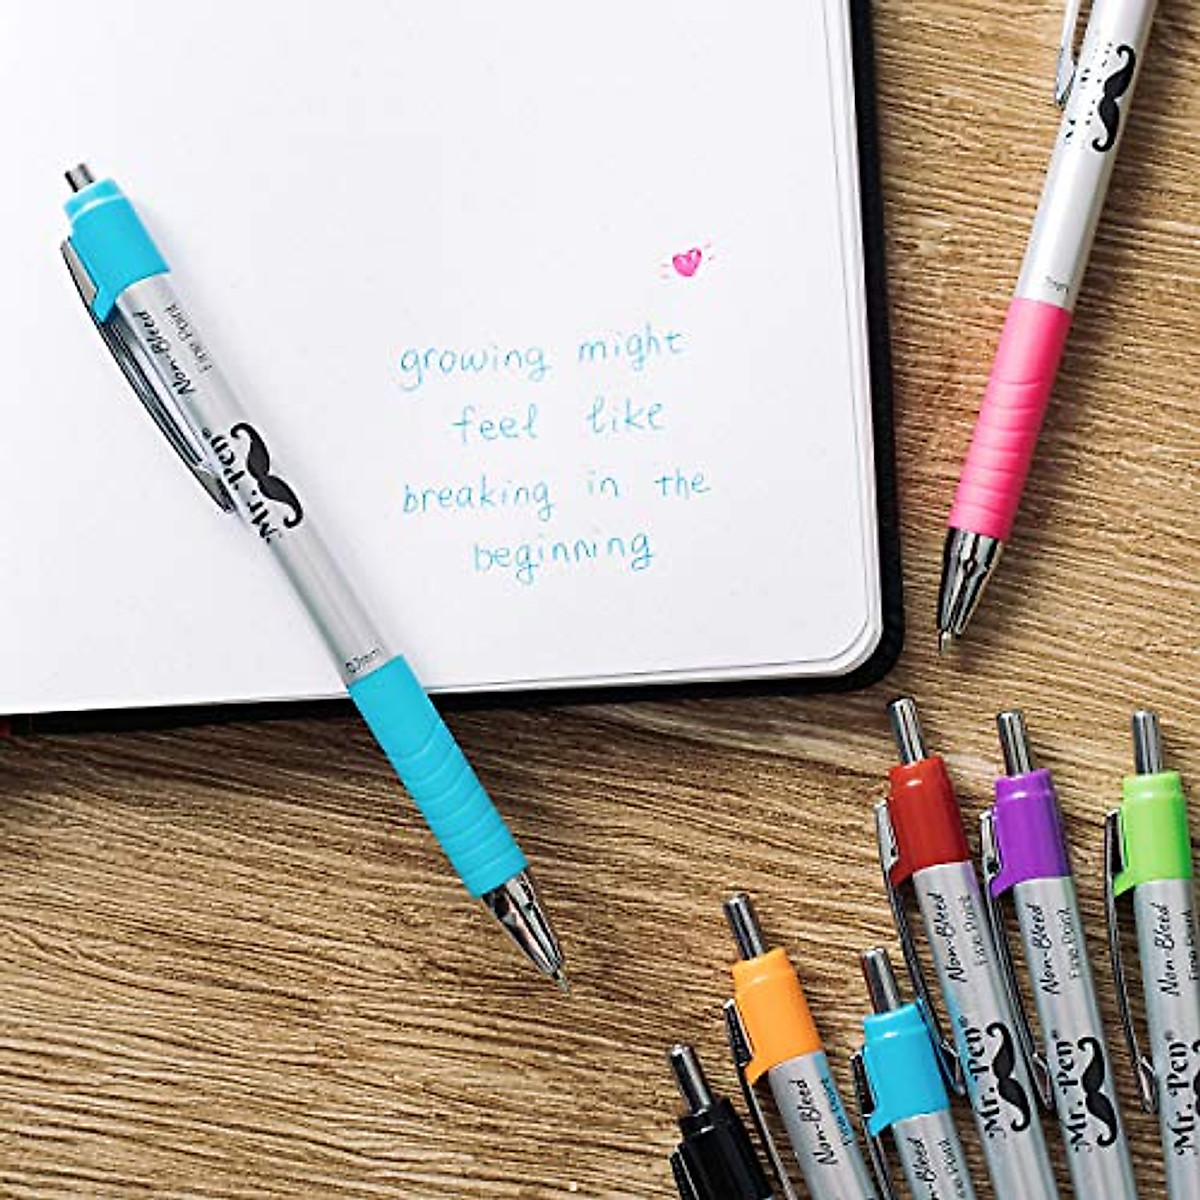 growing might
feel like
breaking in the
beginning
Non-Bleed
Fine Point
Mr. Pen®
0.7mm
Non-Bleed
Fine Point
Mr. Pen®
Non-Bleed
Fine Point
Mr. Pen®
Non-Bleed
Fine Point
Mr. Pen®
Non-Bleed
Fine Point
Non-Bleed
Fine Point